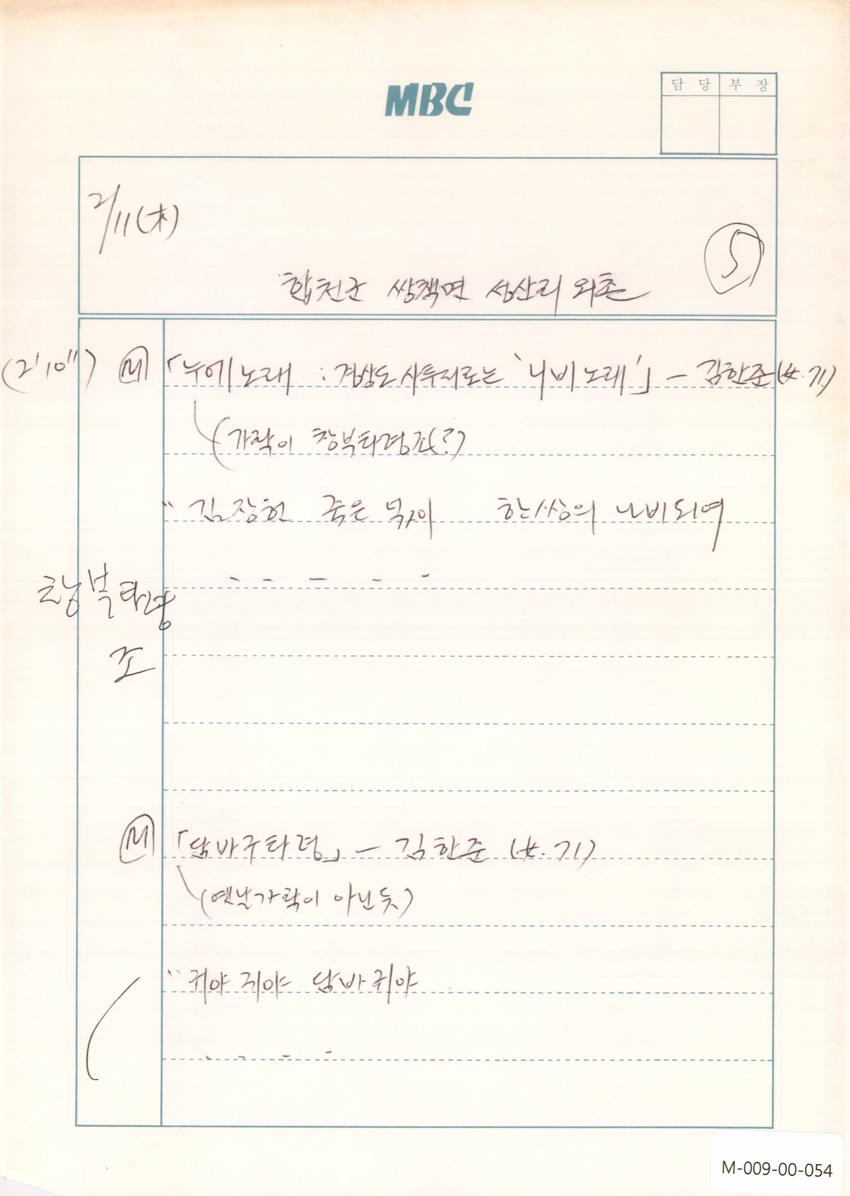 MBC
담 당 부 장
2/11(木)
5
합천군 쌍책면 성산리 외촌
(2'10") M 「누에노래 : 경상도 사투리로는 '니비노래'」 – 김한준(女.71)
(가락이 창부타령조(?)
" 김장헌 죽은 넋이 한쌍의 나비되여
- - - - -
창부타령
조
M 「담바구타령」 – 김한준 (女.71)
(옛날가락이 아닌듯)
" 귀야 귀야 담바귀야
- - - -
M-009-00-054